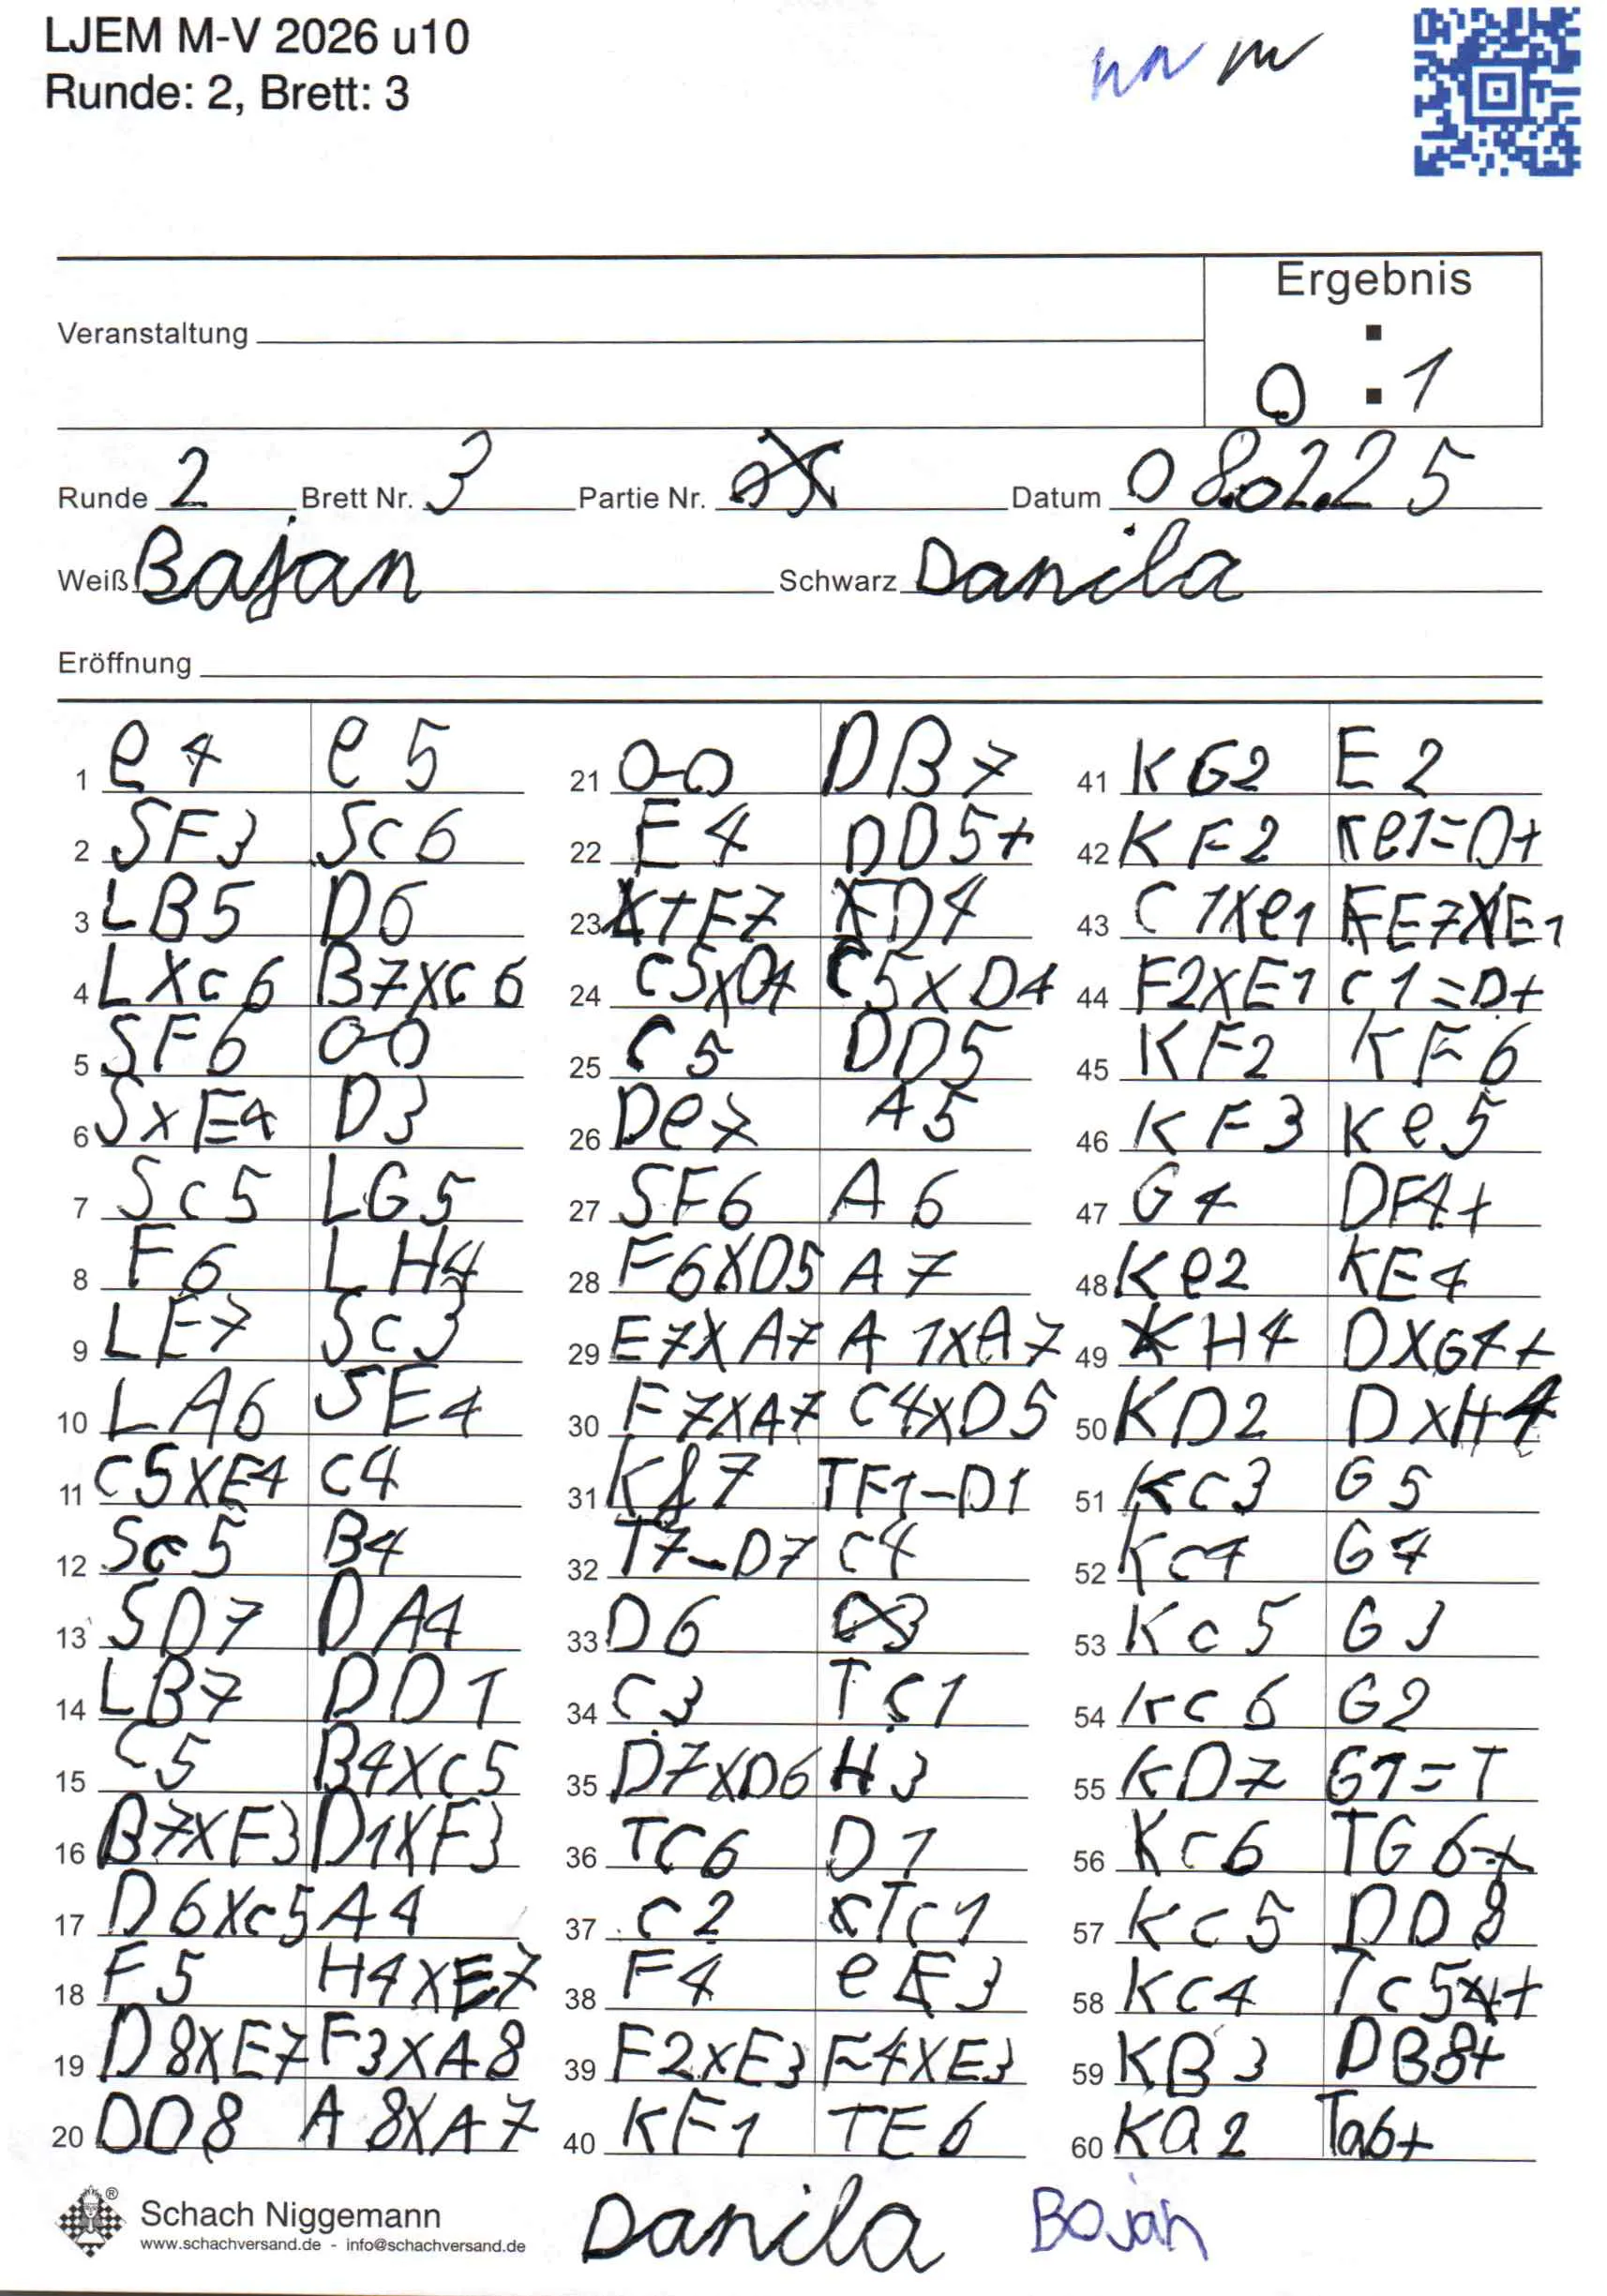 LJEM M-V 2026 u10
Runde: 2, Brett: 3
Ergebnis
Veranstaltung
0 : 1
Runde 2 Brett Nr. 3 Partie Nr. Datum 08.02.25
Weiß Bajan Schwarz Danila
Eröffnung
1 e4 e5
2 SF3 Sc6
3 LB5 D6
4 LXc6 B7XC6
5 SF6 0-0
6 SxE4 D3
7 Sc5 LG5
8 F6 LH4
9 LE7 Sc3
10 LA6 SE4
11 C5XE4 C4
12 Sc5 B4
13 SD7 DA4
14 LB7 DD1
15 C5 B4XC5
16 B7XF3 D1XF3
17 D6Xc5 A4
18 F5 H4XE7
19 D8XE7 F3XA8
20 DD8 A8XA7
21 0-0 DB7
22 E4 DD5+
23 X+F7 FD4
24 C5XD4 C5XD4
25 C5 DD5
26 De7 A5
27 SF6 A6
28 F6XD5 A7
29 E7XA7 A1XA7
30 F7XA7 C4XD5
31 K87 TF1-D1
32 T7-D7 C4
33 D6
34 C3 TC1
35 D7XD6 H3
36 TC6 D1
37 C2 Tc1
38 F4 eE3
39 F2XE3 F4XE3
40 KF1 TE6
41 KG2 E2
42 KF2 Ke1=D+
43 C1Xe1 EE7XE1
44 F2XE1 C1=D+
45 KF2 KF6
46 KF3 Ke5
47 G4 DF4+
48 Ke2 KE4
49 KH4 DXG4+
50 KD2 DXH4
51 Kc3 G5
52 Kc4 G4
53 Kc5 G3
54 Kc6 G2
55 KD7 G1=T
56 Kc6 TG6+
57 Kc5 DD8
58 Kc4 Tc5+
59 KB3 DB8+
60 Ka2 Ta6+
Schach Niggemann
www.schachversand.de - info@schachversand.de
Danila Bojan